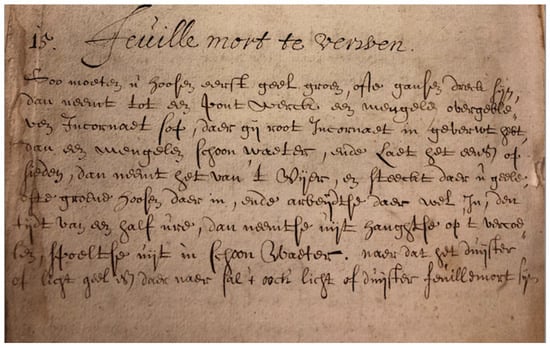 15. Feuille mort te verwen.
Soo moeten u hoosen eerst geel groen, ofte gansen dreck sijn,
dan neemt tot een pont werck een mengele overgeble-
ven Incornaet sop, daer gij root Incornaet in geverwt hebt,
dan een mengelen schoon waeter, ende laet het eens op
sieden, dan neemt het van 't Vijer, en steeckt daer u geele
ofte groene hoosen daer in, ende arbeijdtse daer wel In, den
tijdt van een half ure, dan neemtse uijt hanghtse op t vercoe-
len, spoeltse uijt in schoon Waeter. naer dat het duijster
of licht geel is daer naer sal 't oock licht of duijster feuillemort sijn